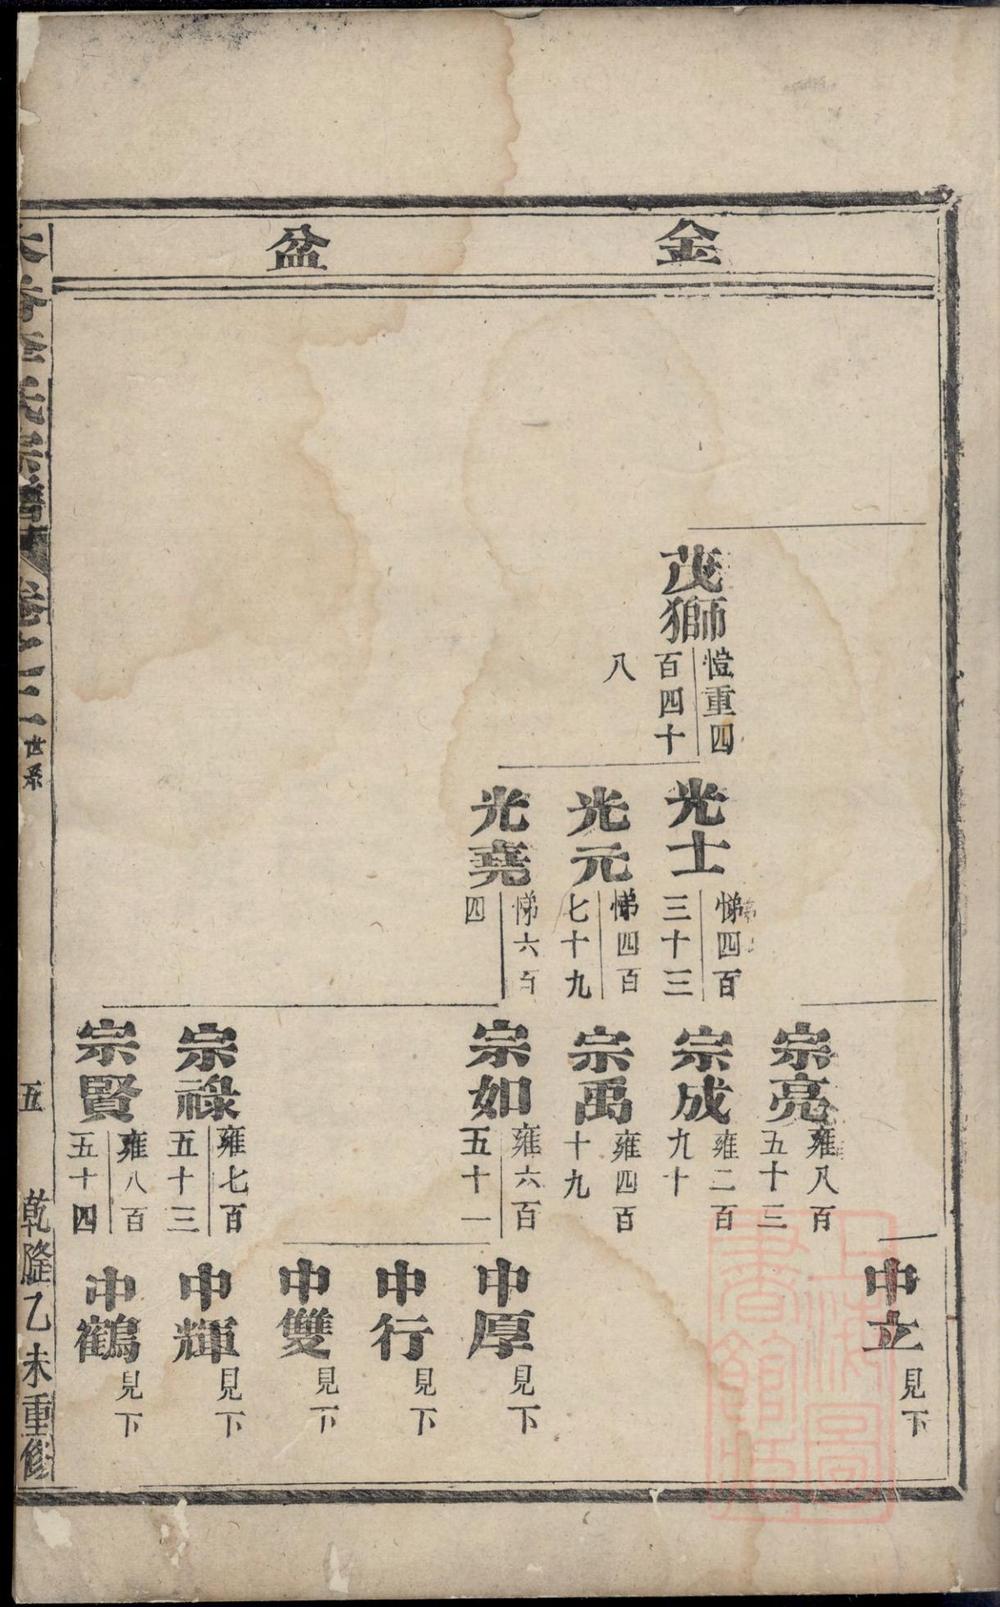 金盆
茂獅
愷重四
百四十
八
光士
悌四百
三十三
光元
悌四百
七十九
光堯
悌六百
四
宗亮
雍八百
五十三
宗成
雍二百
九十
宗禹
雍四百
十九
宗如
雍六百
五十一
宗祿
雍七百
五十三
宗賢
雍八百
五十四
中立
見下
中厚
見下
中行
見下
中雙
見下
中輝
見下
中鶴
見下
氏宗譜
世系
五
乾隆乙未重修
上海圖書館藏